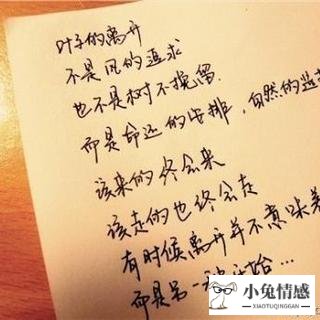 叶子的离开
不是风的追求
也不是树不挽留
而是命运的安排，自然的选
该来的终会来
该走的也终会走
有时候离开并不意味着
而是另一种开始...
小兔情感
XIAOTUQINGGAN